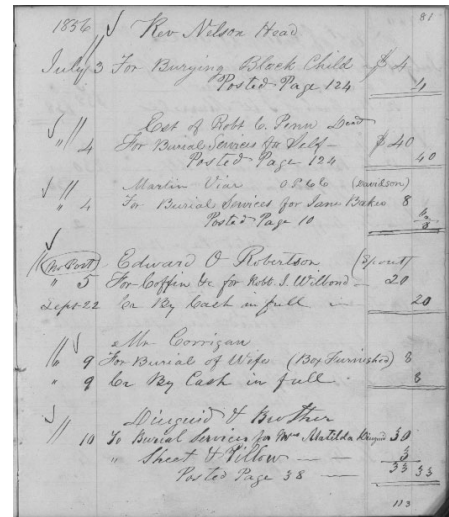 81
1856 Rev Nelson Head
July 3 For Burying Black Child $ 4
Posted Page 124 4
Est of Robt C. Penn Dead
" 4 For Burial Services for Self - $ 40
Posted Page 124 40
Martin Viar (Davidson)
" 4 For Burial Services for Jane Baker 8
Posted Page 10 8
Edward O Robertson (Spout)
" 5 For Coffin &c for Robt. J. 20
Sept 22 Cr By Cash in full 20
Mr Corrigan
9 For Burial of Wife (Box Furnished) 8
" 9 Cr By Cash in full 8
Diuguid & Brother
" 10 To Burial Services for Mrs Matilda Diuguid 30
" Sheet & Pillow 3
Posted Page 38 33 33
113